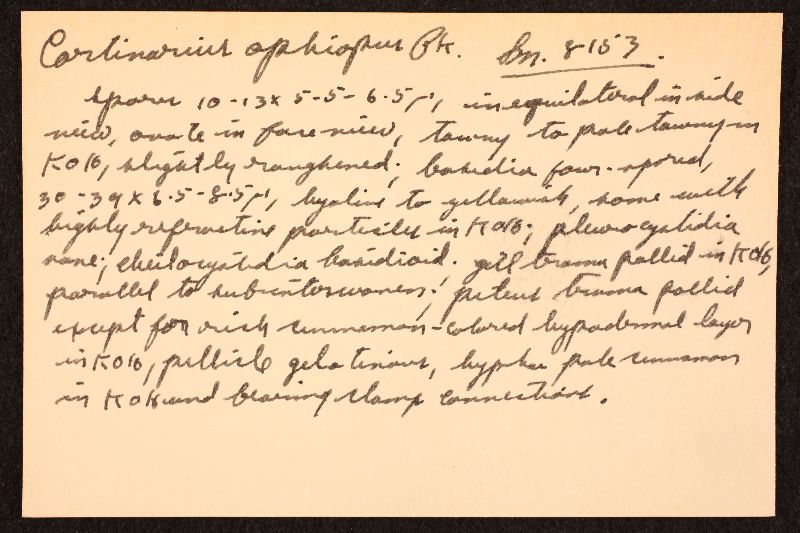 Cortinarius ophiopus Pk. Sm. 8153.
spores 10-13 x 5.5-6.5 µ, inequilateral in side
view, ovate in face view, tawny to pale tawny in
KOH, slightly roughened; basidia four-spored,
30-39 x 6.5-8.5 µ, hyaline to yellowish, some with
highly refractive particles in KOH; pleurocystidia
none; cheilocystidia basidioid. gill trama pallid in KOH,
parallel to subinterwoven; pileus trama pallid
except for rich cinnamon-colored hypodermal layer
in KOH, pellicle gelatinous, hyphae pale cinnamon
in KOH and bearing clamp connections.